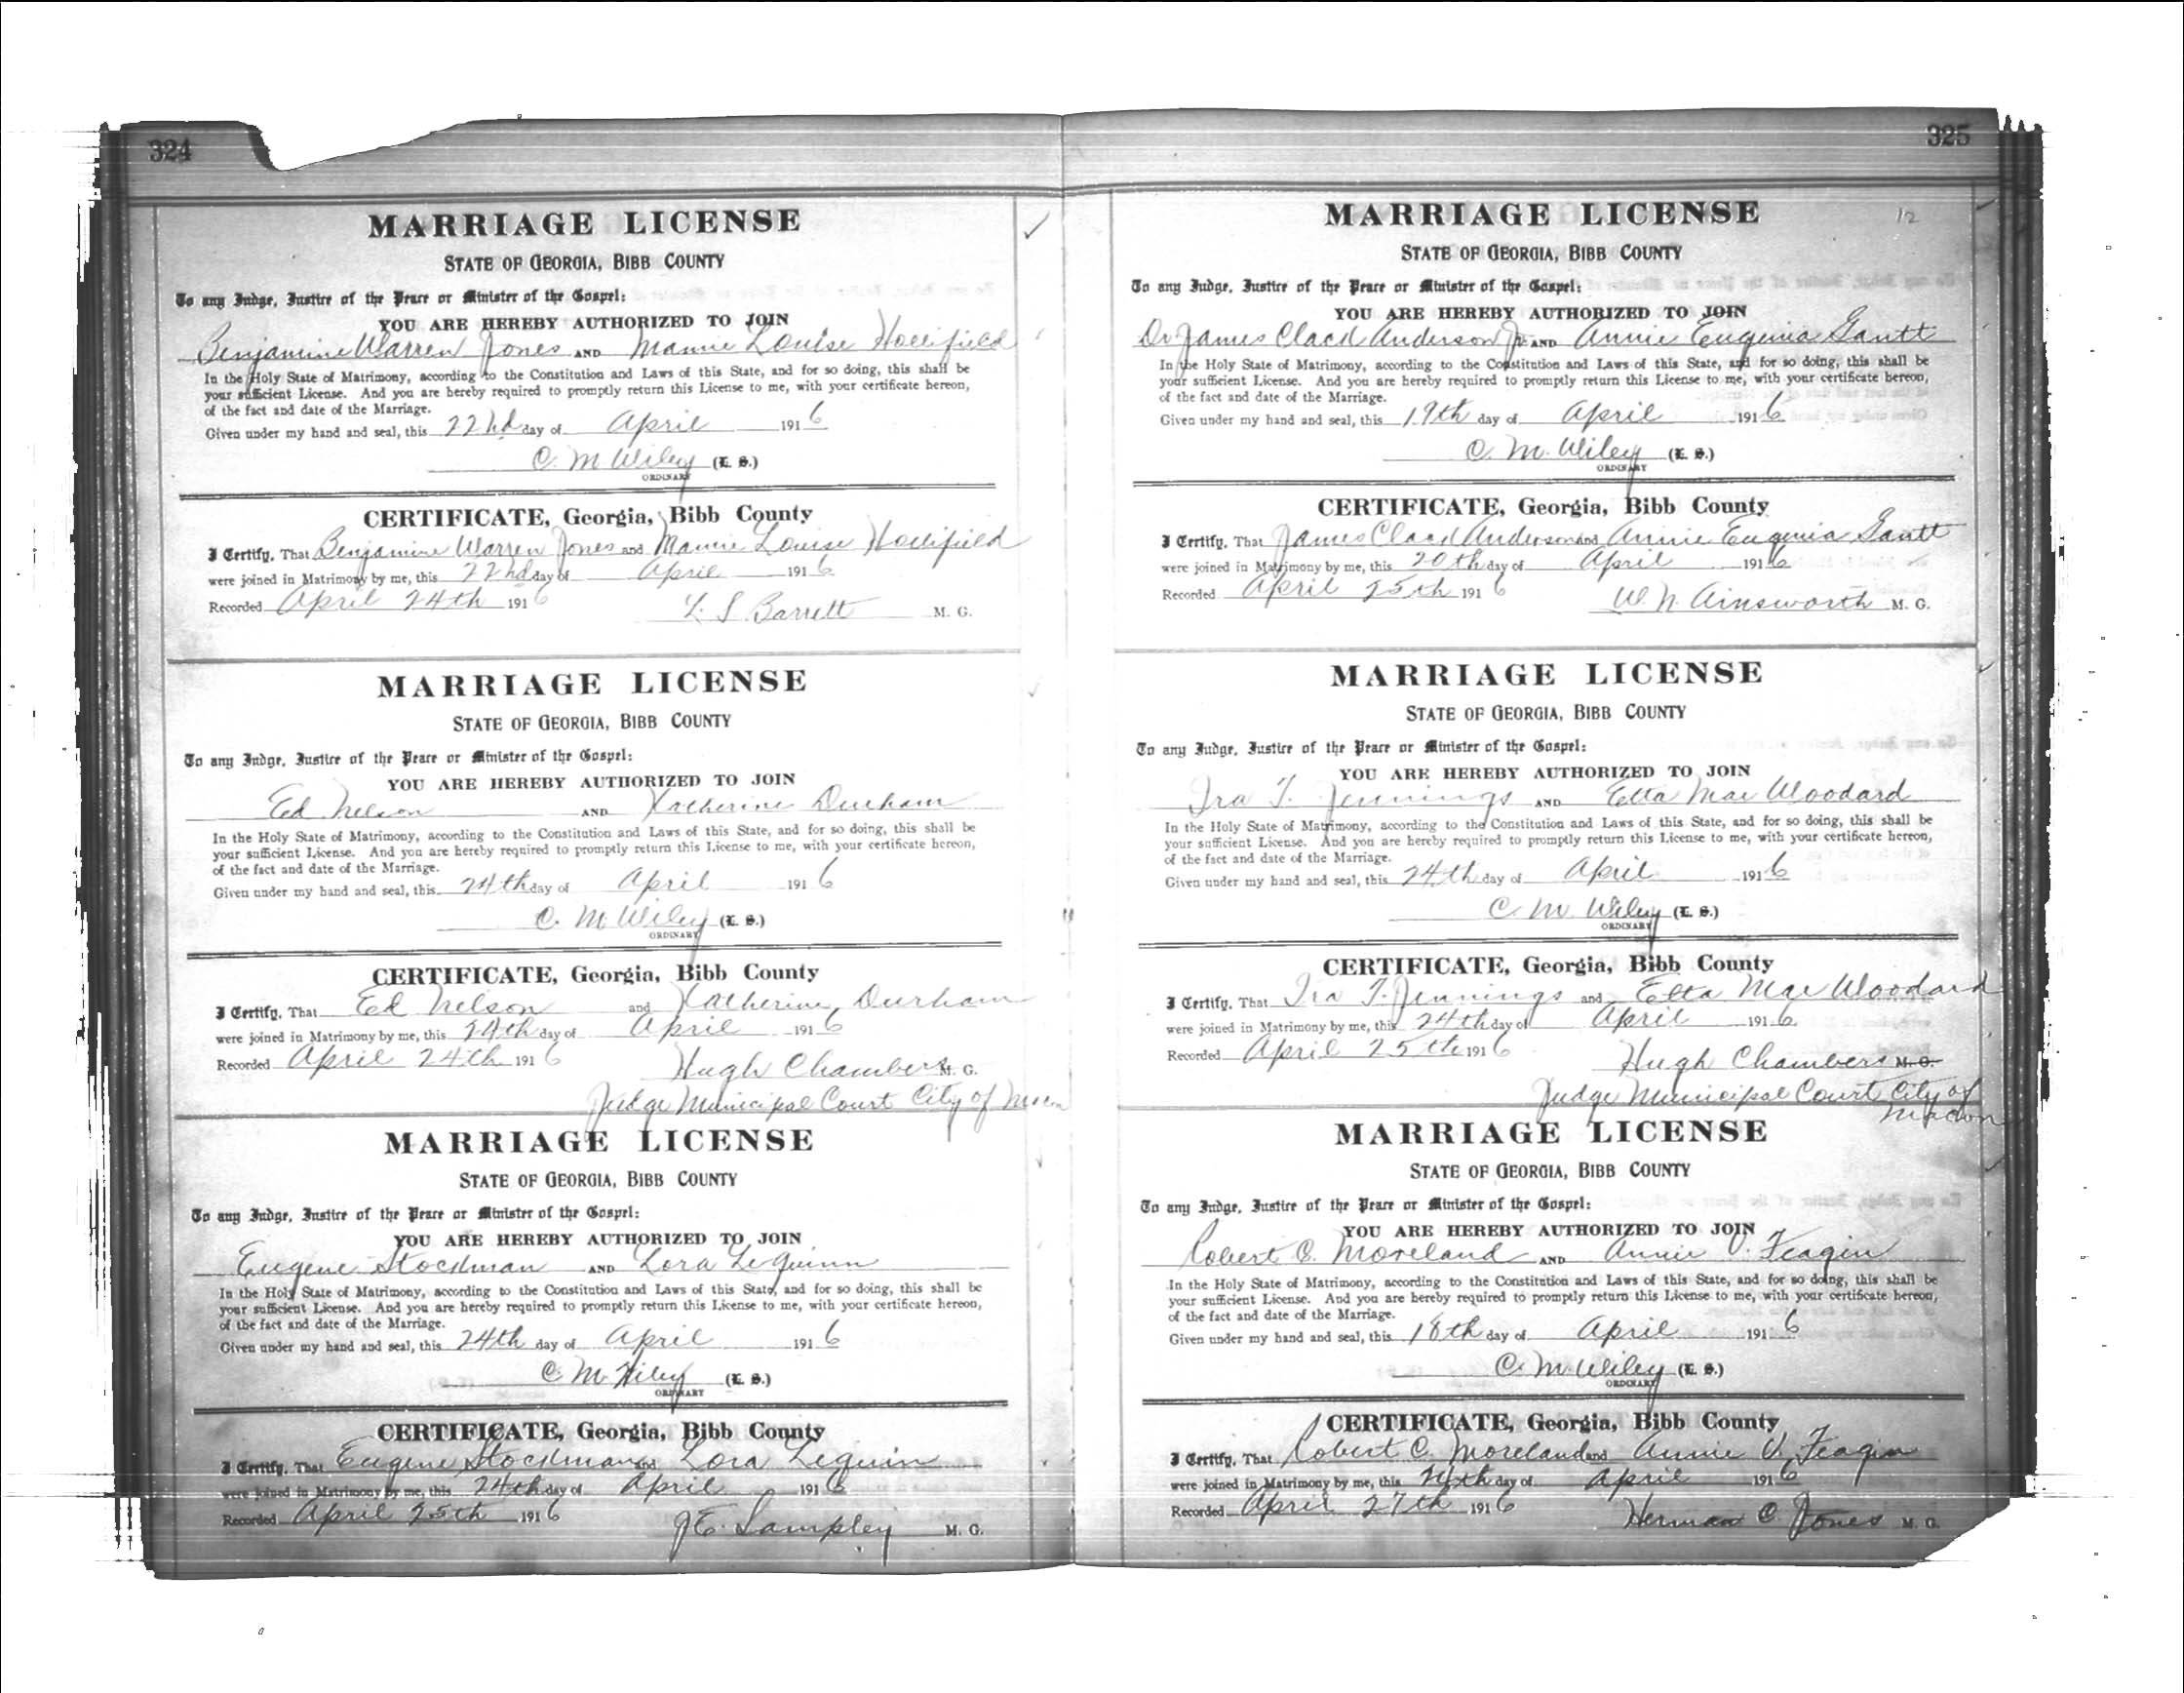 324
MARRIAGE LICENSE
STATE OF GEORGIA, BIBB COUNTY
To any Judge, Justice of the Peace or Minister of the Gospel:
YOU ARE HEREBY AUTHORIZED TO JOIN
Benjamine Warren Jones AND Mamie Louise Hollifield
In the Holy State of Matrimony, according to the Constitution and Laws of this State, and for so doing, this shall be
your sufficient License. And you are hereby required to promptly return this License to me, with your certificate hereon,
of the fact and date of the Marriage.
Given under my hand and seal, this 22nd day of April 1916
C. M Wiley (L. S.)
ORDINARY
CERTIFICATE, Georgia, Bibb County
I Certify, That Benjamine Warren Jones and Mamie Louise Hollifield
were joined in Matrimony by me, this 22nd day of April 1916
Recorded April 24th 1916 L. S. Barrett M. G.
MARRIAGE LICENSE
STATE OF GEORGIA, BIBB COUNTY
To any Judge, Justice of the Peace or Minister of the Gospel:
YOU ARE HEREBY AUTHORIZED TO JOIN
Ed Nelson AND Katherine Durham
In the Holy State of Matrimony, according to the Constitution and Laws of this State, and for so doing, this shall be
your sufficient License. And you are hereby required to promptly return this License to me, with your certificate hereon,
of the fact and date of the Marriage.
Given under my hand and seal, this 24th day of April 1916
C. M Wiley (L. S.)
ORDINARY
CERTIFICATE, Georgia, Bibb County
I Certify, That Ed Nelson and Katherine Durham
were joined in Matrimony by me, this 24th day of April 1916
Recorded April 24th 1916 Hugh Chambers M. G.
Judge Municipal Court City of Macon
MARRIAGE LICENSE
STATE OF GEORGIA, BIBB COUNTY
To any Judge, Justice of the Peace or Minister of the Gospel:
YOU ARE HEREBY AUTHORIZED TO JOIN
Eugene Stockman AND Lora Lequinn
In the Holy State of Matrimony, according to the Constitution and Laws of this State, and for so doing, this shall be
your sufficient License. And you are hereby required to promptly return this License to me, with your certificate hereon,
of the fact and date of the Marriage.
Given under my hand and seal, this 24th day of April 1916
C. M. Wiley (L. S.)
ORDINARY
CERTIFICATE, Georgia, Bibb County
I Certify, That Eugene Stockman and Lora Lequin
were joined in Matrimony by me, this 24th day of April 1916
Recorded April 25th 1916 J E. Lampley M. G.
325
12
MARRIAGE LICENSE
STATE OF GEORGIA, BIBB COUNTY
To any Judge, Justice of the Peace or Minister of the Gospel:
YOU ARE HEREBY AUTHORIZED TO JOIN
Dr. James Claud Anderson Jr. AND Annie Eugenia Gantt
In the Holy State of Matrimony, according to the Constitution and Laws of this State, and for so doing, this shall be
your sufficient License. And you are hereby required to promptly return this License to me, with your certificate hereon,
of the fact and date of the Marriage.
Given under my hand and seal, this 19th day of April 1916
C. M. Wiley (L. S.)
ORDINARY
CERTIFICATE, Georgia, Bibb County
I Certify, That James Claud Anderson and Annie Eugenia Gantt
were joined in Matrimony by me, this 20th day of April 1916
Recorded April 25th 1916 W. N. Ainsworth M. G.
MARRIAGE LICENSE
STATE OF GEORGIA, BIBB COUNTY
To any Judge, Justice of the Peace or Minister of the Gospel:
YOU ARE HEREBY AUTHORIZED TO JOIN
Ira T. Jennings AND Etta Mae Woodard
In the Holy State of Matrimony, according to the Constitution and Laws of this State, and for so doing, this shall be
your sufficient License. And you are hereby required to promptly return this License to me, with your certificate hereon,
of the fact and date of the Marriage.
Given under my hand and seal, this 24th day of April 1916
C. M. Wiley (L. S.)
ORDINARY
CERTIFICATE, Georgia, Bibb County
I Certify, That Ira T. Jennings and Etta Mae Woodard
were joined in Matrimony by me, this 24th day of April 1916
Recorded April 25th 1916 Hugh Chambers M. G.
Judge Municipal Court City of
Macon
MARRIAGE LICENSE
STATE OF GEORGIA, BIBB COUNTY
To any Judge, Justice of the Peace or Minister of the Gospel:
YOU ARE HEREBY AUTHORIZED TO JOIN
Robert C. Moreland AND Annie V. Feagin
In the Holy State of Matrimony, according to the Constitution and Laws of this State, and for so doing, this shall be
your sufficient License. And you are hereby required to promptly return this License to me, with your certificate hereon,
of the fact and date of the Marriage.
Given under my hand and seal, this 18th day of April 1916
C. M. Wiley (L. S.)
ORDINARY
CERTIFICATE, Georgia, Bibb County
I Certify, That Robert C. Moreland and Annie V. Feagin
were joined in Matrimony by me, this day of April 1916
Recorded April 27th 1916 Herman C. Jones M. G.